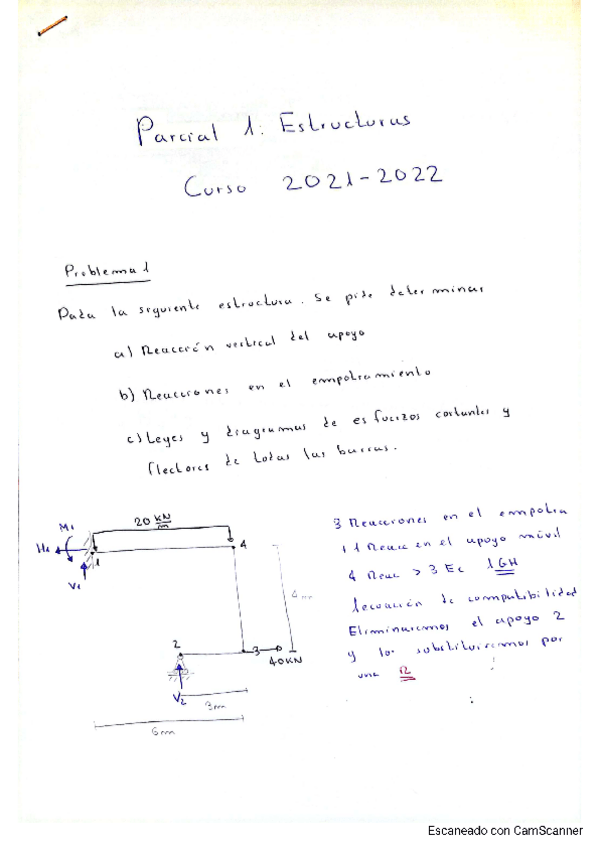 Parcial 1: Estructuras
Curso 2021-2022
Problema 1
Dada la siguiente estructura. Se pide determinar
a) Reacción vertical del apoyo
b) Reacciones en el empotramiento
c) Leyes y diagramas de esfuerzos cortantes y
flectores de todas las barras.
20 kN/m
M1
H1
1
V1
4
4m
2
3
40KN
V2
3m
6m
3 Reacciones en el empotra
+1 Reac en el apoyo móvil
4 Reac > 3 Ec 1GH
1 ecuación de compatibilidad
Eliminaremos el apoyo 2
y lo substituiremos por
una R
Escaneado con CamScanner